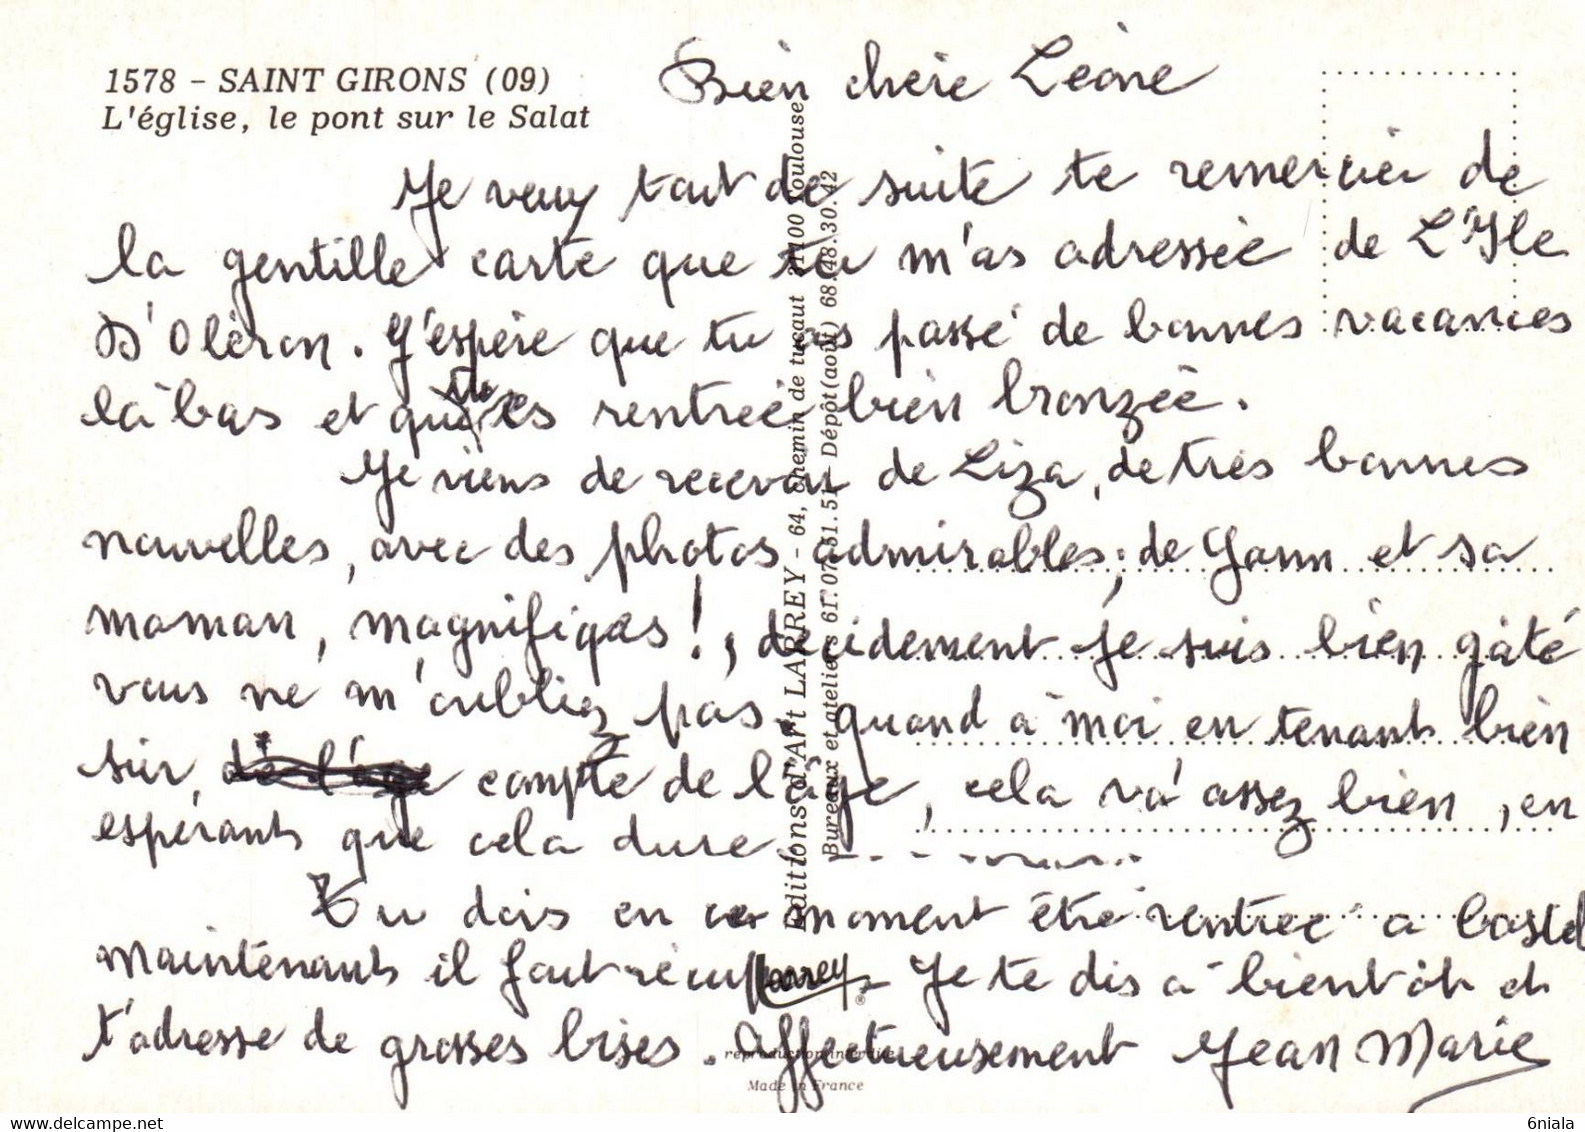 1578 - SAINT GIRONS (09)
L'église, le pont sur le Salat
Bien chère Léone
Je veux tout de suite te remercier de
la gentille carte que tu m'as adressée de L'Ile
D'Oléron. J'espère que tu as passé de bonnes vacances
là bas et que tu es rentrée bien bronzée.
Je viens de recevoir de Liza, de très bonnes
nouvelles, avec des photos admirables, de Yann et sa
maman, magnifiques !, décidement je suis bien gâté
vous ne m'oubliez pas. quand à moi en tenant bien
sûr, compte de l'âge, cela và assez bien, en
espérant que cela dure
Tu dois en ce moment être rentrée a Castel
Maintenant il faut Je te dis à bientôt et
t'adresse de grosses bises. Affectueusement Jean Marie
Editions d'Art LARREY - 64, Chemin de tucaut 31100 Toulouse
Bureaux et ateliers 61.07.51.51 - Dépôt (août) 68.48.30.42
Larrey
®
reproduction interdite
Made in France
6niala